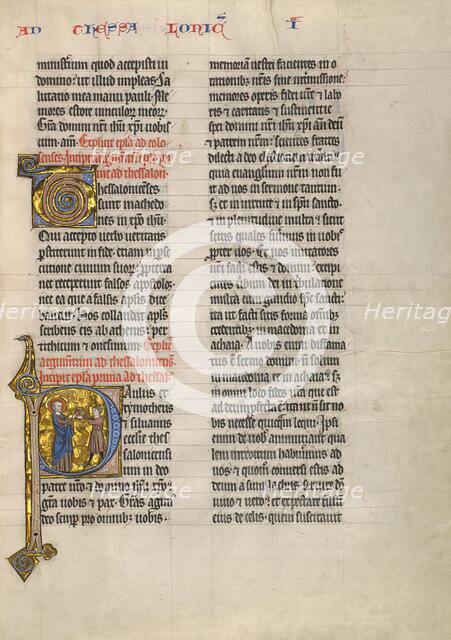 AD THESSALONIC I
ministerium quod accepisti in
domino: ut illud impleas. Sa
lutatio mea manu pauli. Me
mores estote vinculorum meorum.
Gratia domini nostri ihu xpi vobis
cum. am. Explicit epla ad colo
censes. Incipit argumentum
ad thessaloni
Thessalonicenses
sunt macedo
nes in xpo ihu.
Qui accepto verbo veritatis
perstiterunt in fide: etiam in perse
cutione civium suorum. Preterea
nec receperunt falsos aplos:
nec ea que a falsis aplis dice
bantur. hos collaudat apls
scribens eis ab athenis: per
tithicum et onesimum. Explicit
argumentum ad thessalonicenses.
Incipit epla prima ad thessal.
Paulus et
tymotheus
et silvanus
ecclesie thes
salonicensi
um in deo
patre nostro et domino ihu xpo:
gratia vobis et pax. Gratias agimus
deo semper pro omnibus vobis:
memoriam vestri facientes in o
rationibus nostris sine intermissione.
memores operis fidei vestre et labo
ris et caritatis et sustinentie
spei domini nostri ihu xpi ante deum
et patrem nostrum: scientes fratres
dilecti a deo electionem vestram:
quia evangelium nostrum non fu
it ad vos in sermone tantum:
sed et in virtute et in spiritu sancto
et in plenitudine multa: sicut
scitis quales fuimus in vobis
propter vos. Et vos imitatores
nostri facti estis et domini: excipi
entes verbum in tribulatione
multa cum gaudio spiritus sancti:
ita ut facti sitis forma omnibus
credentibus in macedonia et in
achaia. A vobis enim diffama
tus est sermo domini: non solum
in macedonia et in achaia: sed et
in omni loco fides vestra que est
ad deum profecta est: ita ut non sit
nobis necesse quicquam loqui. Ipsi
enim de vobis annunciant qua
lem introitum habuimus ad
vos: et quomodo conversi estis ad
deum a simulachris: servire deo
vivo et vero: et expectare filium
eius de celis: quem suscitavit
heritage
Images